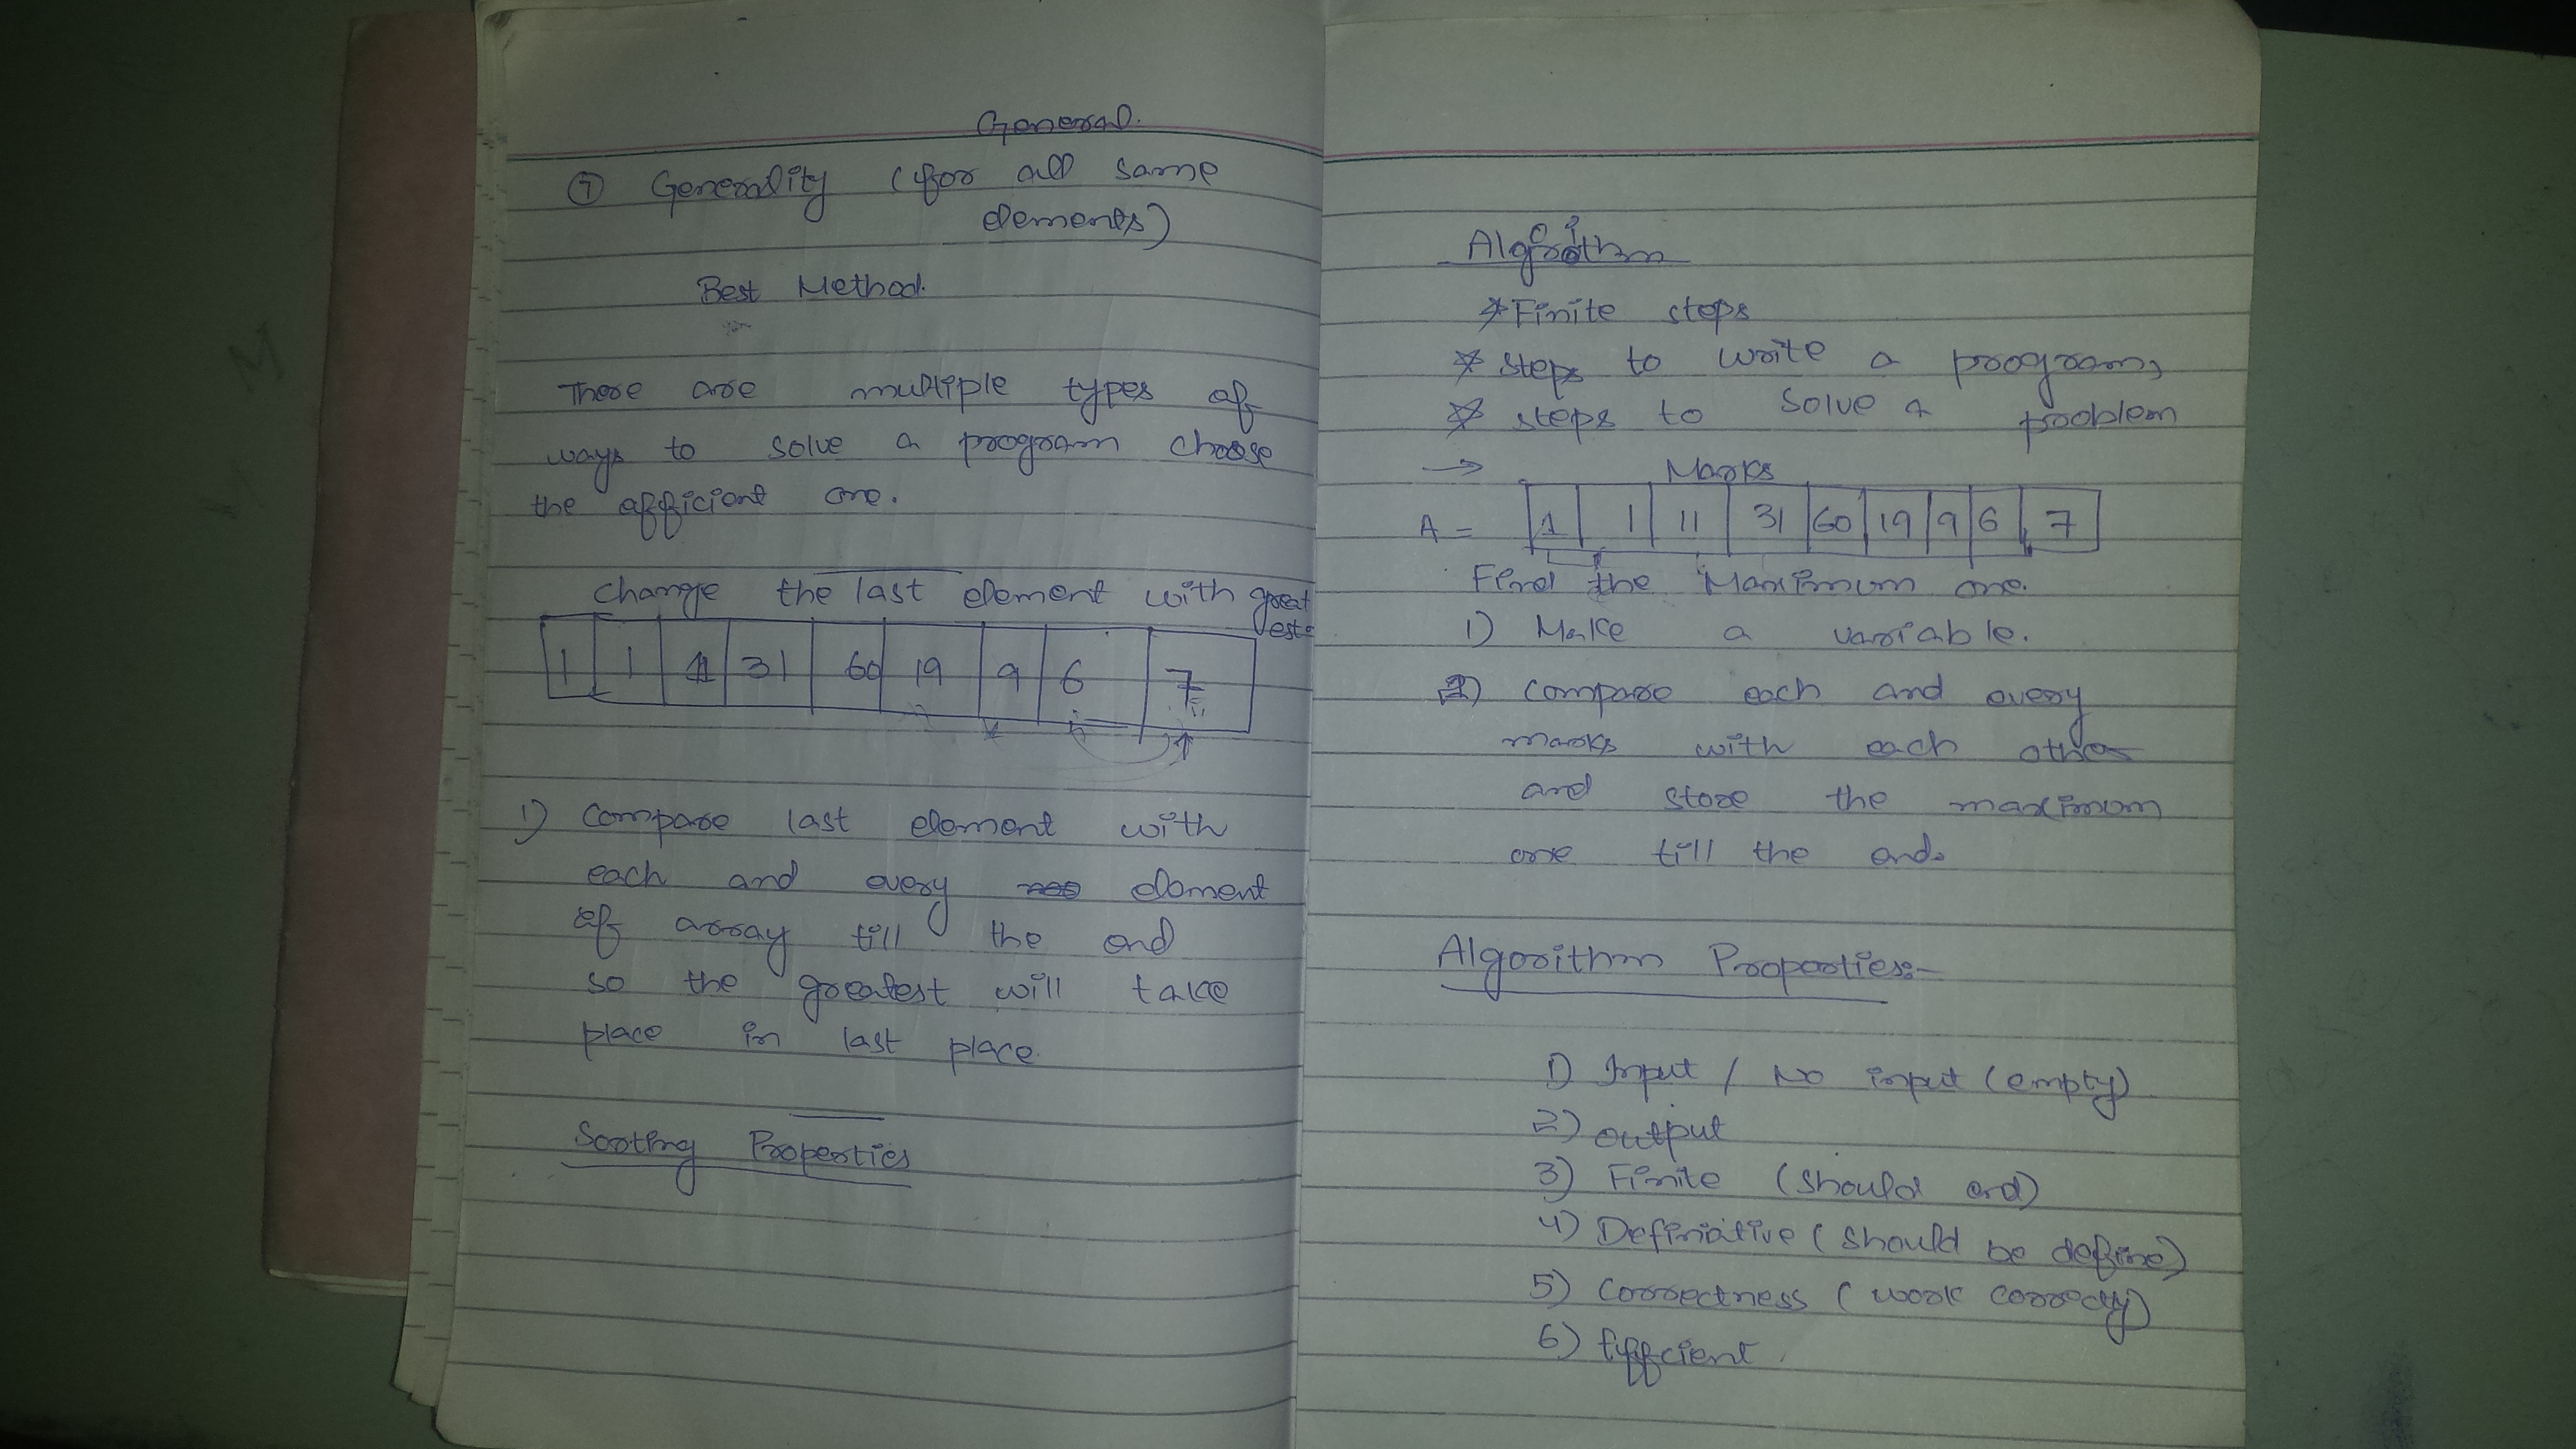 General.
⑦ Generality (for all same
elements)
Best Method.
There are multiple types of
ways to solve a program choose
the efficient one.
change the last element with great
est
1 1 11 31 60 19 9 6 7
1) Compare last element with
each and every element
of array till the end
so the greatest will take
place in last place.
Sorting Properties
Algorithm
* Finite steps
* steps to write a program,
* steps to solve a problem
→ Marks
A = 1 1 11 31 60 19 9 6 7
Find the Maximum one.
1) Make a variable.
2) compare each and every
marks with each other
and store the maximum
one till the end.
Algorithm Properties:-
1) Input / No input (empty)
2) output
3) Finite (should end)
4) Definiative (should be define)
5) Correctness (work correctly)
6) Effcient.